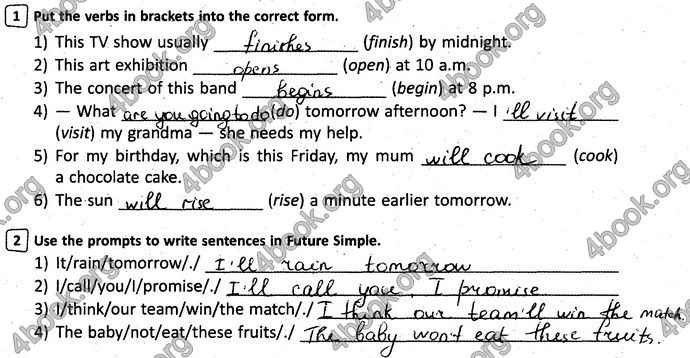 1 Put the verbs in brackets into the correct form.
1) This TV show usually finiches (finish) by midnight.
2) This art exhibition opens (open) at 10 a.m.
3) The concert of this band begins (begin) at 8 p.m.
4) — What are you going to do (do) tomorrow afternoon? — I 'll visit
(visit) my grandma — She needs my help.
5) For my birthday, which is this Friday, my mum will cook (cook)
a chocolate cake.
6) The sun will rise (rise) a minute earlier tomorrow.
2 Use the prompts to write sentences in Future Simple.
1) It/rain/tomorrow/./ I'll rain tomorrow
2) I/call/you/I/promise/./ I'll call you, I promise
3) I/think/our team/win/the match/./ I think our team'll win the match.
4) The baby/not/eat/these fruits/./ The baby won't eat these fruits.
4book.org
4book.org
4book.org
4book.org
4book.org
4book.org
4book.org